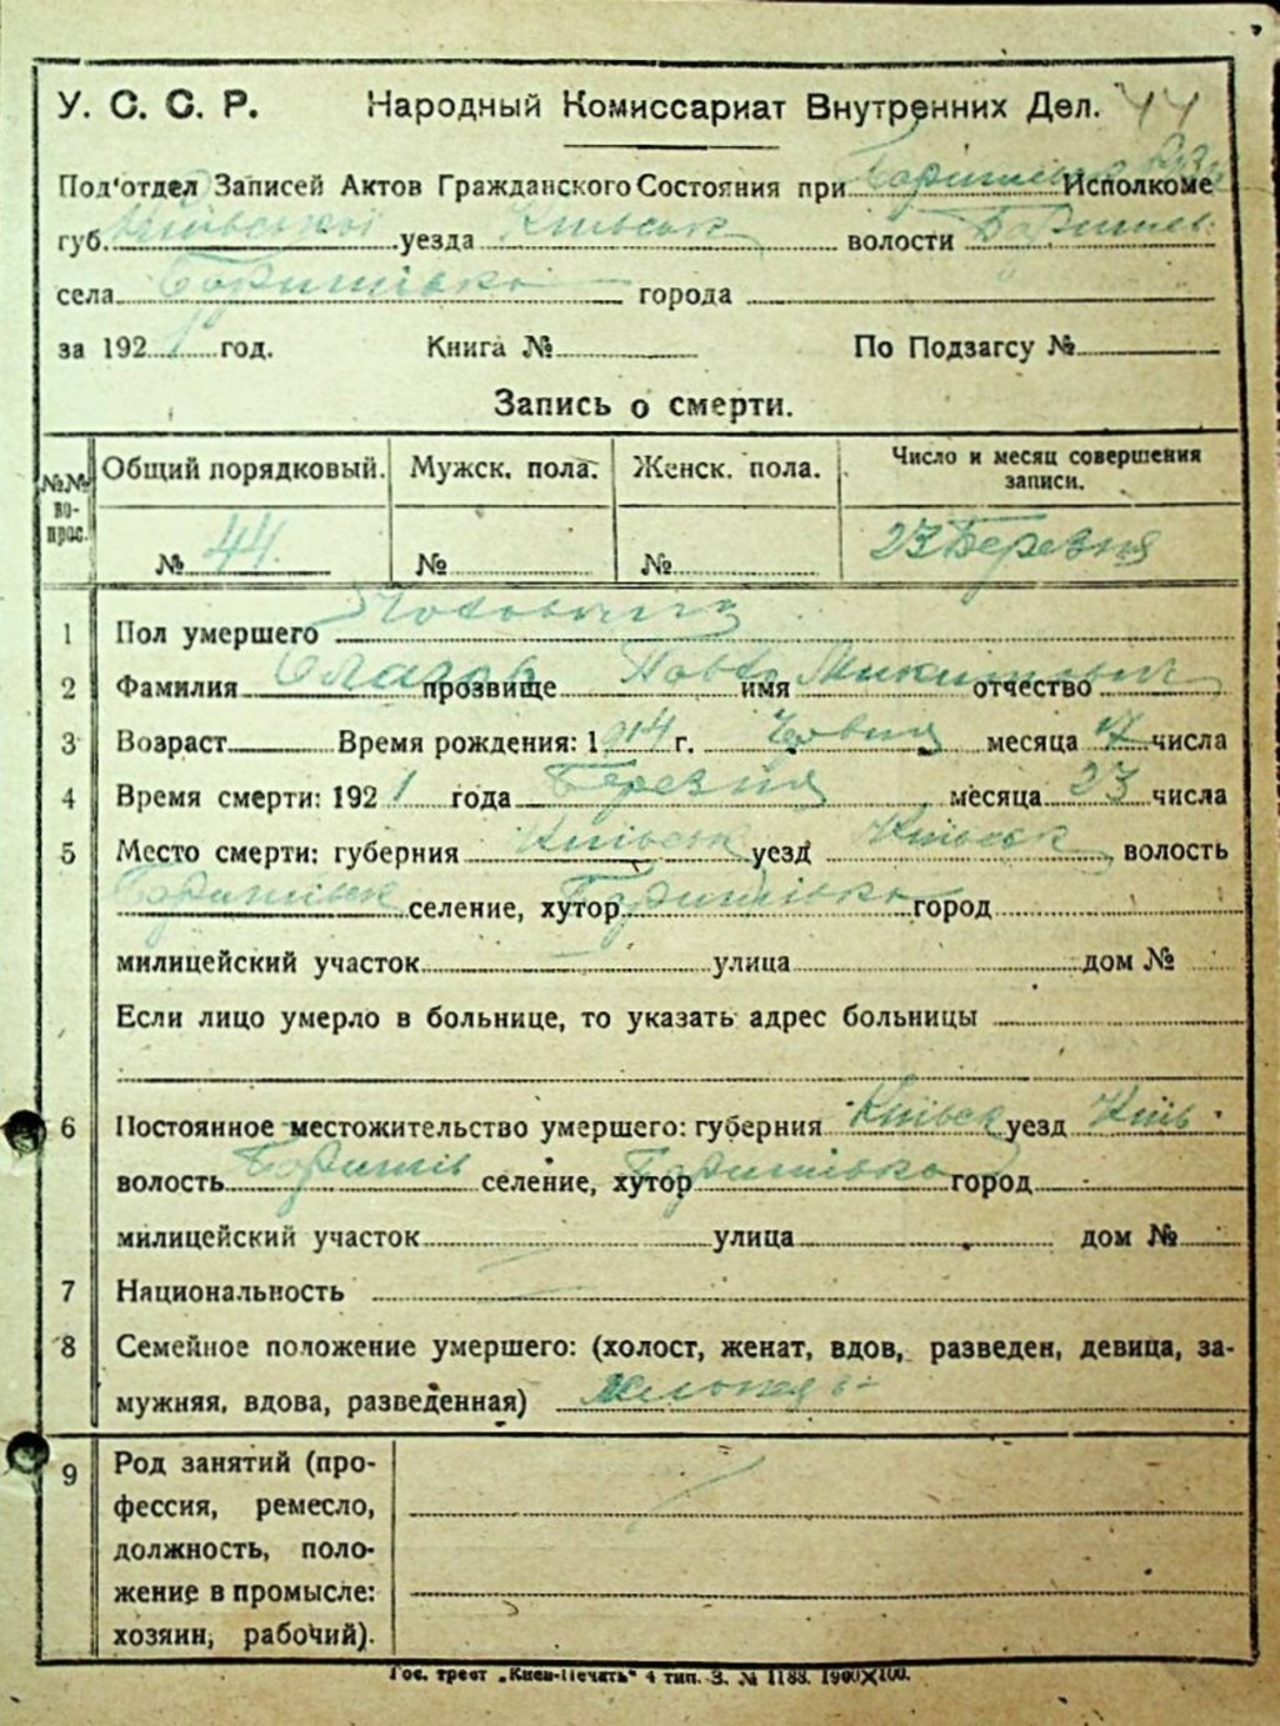 У. С. С. Р. Народный Комиссариат Внутренних Дел. 44
Под'отдел Записей Актов Гражданского Состояния при Исполкоме
губ. Київської уезда Київськ волости Баришев.
села Баришівка города
за 1921 год. Книга № По Подзагсу №
Запись о смерти.
№№ вопрос. Общий порядковый. Мужск. пола. Женск. пола. Число и месяц совершения записи.
№ 44. № № 23 Березня
1 Пол умершего
2 Фамилия прозвище Павло имя Микитович отчество
3 Возраст Время рождения: 1914 г. месяца 7 числа
4 Время смерти: 1921 года Березня месяца 23 числа
5 Место смерти: губерния Київськ уезд Київськ волость
Баришівськ селение, хутор Баришівка город
милицейский участок улица дом №
Если лицо умерло в больнице, то указать адрес больницы
6 Постоянное местожительство умершего: губерния Київськ уезд Київ
волость Баришів селение, хутор Баришівка город
милицейский участок улица дом №
7 Национальность
8 Семейное положение умершего: (холост, женат, вдов, разведен, девица, за-
мужняя, вдова, разведенная)
9 Род занятий (про-
фессия, ремесло,
должность, поло-
жение в промысле:
хозяин, рабочий).
Гос. трест „Киев-Печать" 4 тип. З. № 1188. 1900X100.